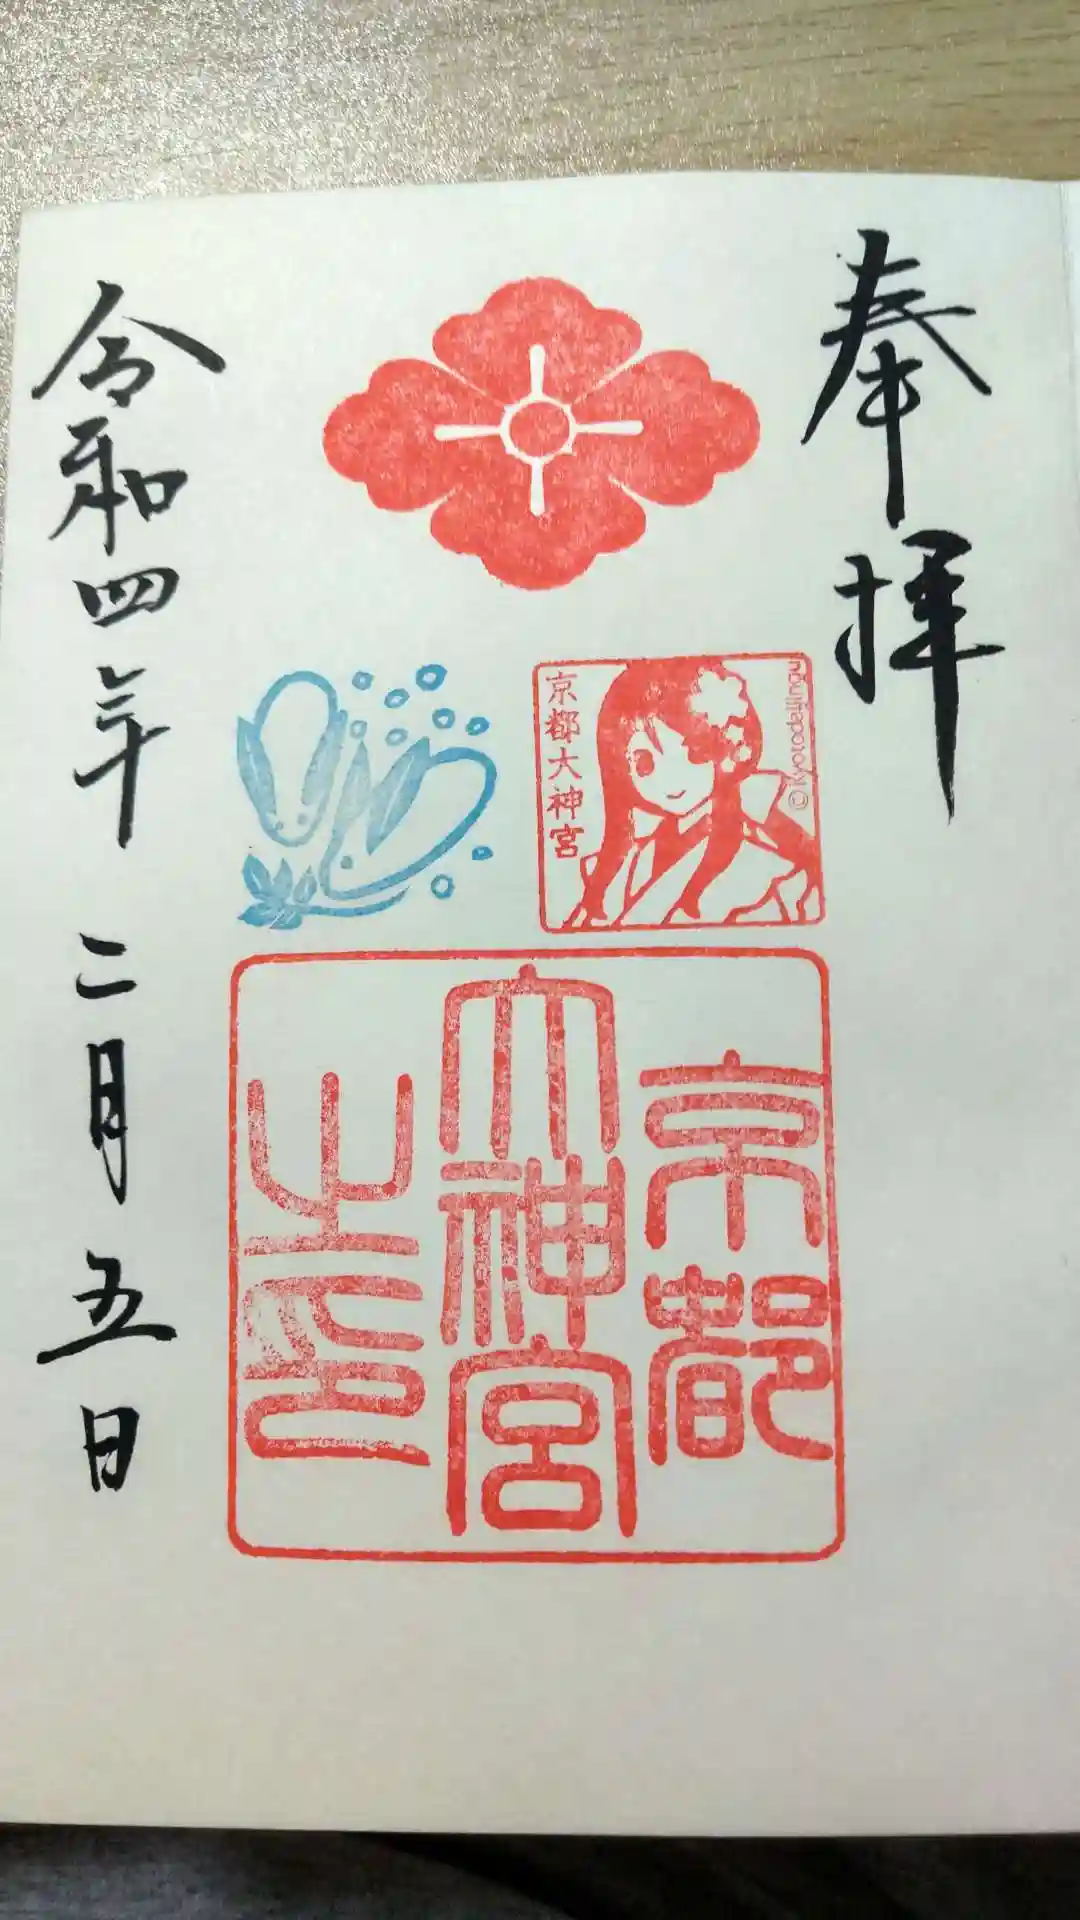 奉拝
京都大神宮
京都
大神宮
之印
令和四年二月五日